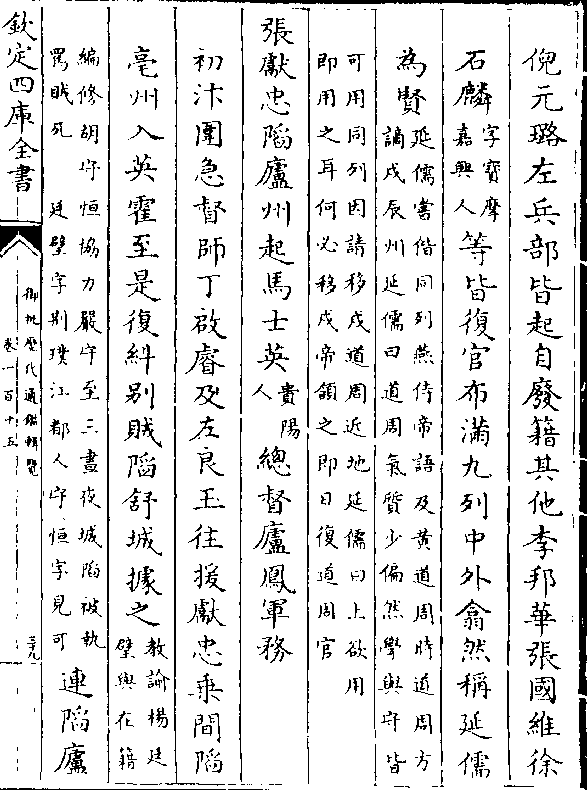 倪元璐左兵部皆起自廢籍其他李邦華張國維徐
石麟字寶摩嘉興人等皆復官布滿九列中外翕然稱延儒
為賢延儒嘗偕同列燕侍帝語及黄道周時道周方
謫戍辰州延儒曰道周氣質少偏然學與守皆
可用同列因請移戍道周近地延儒曰上欲用
即用之耳何必移戍帝領之即日復道周官
張獻忠陷廬州起馬士英貴陽人總督廬鳳軍務
初汴圍急督師丁啟睿及左良玉往援獻忠乗間陷
亳州入英霍至是復糾别賊陷舒城據之教諭楊廷璧與在籍
編修胡守恒協力嚴守至三晝夜城陷被執
罵賊死 廷璧字荆璞江都人守恒字見可連陷廬
欽定四庫全書
御批歷代通鑑輯覽
卷一百十五
三十九